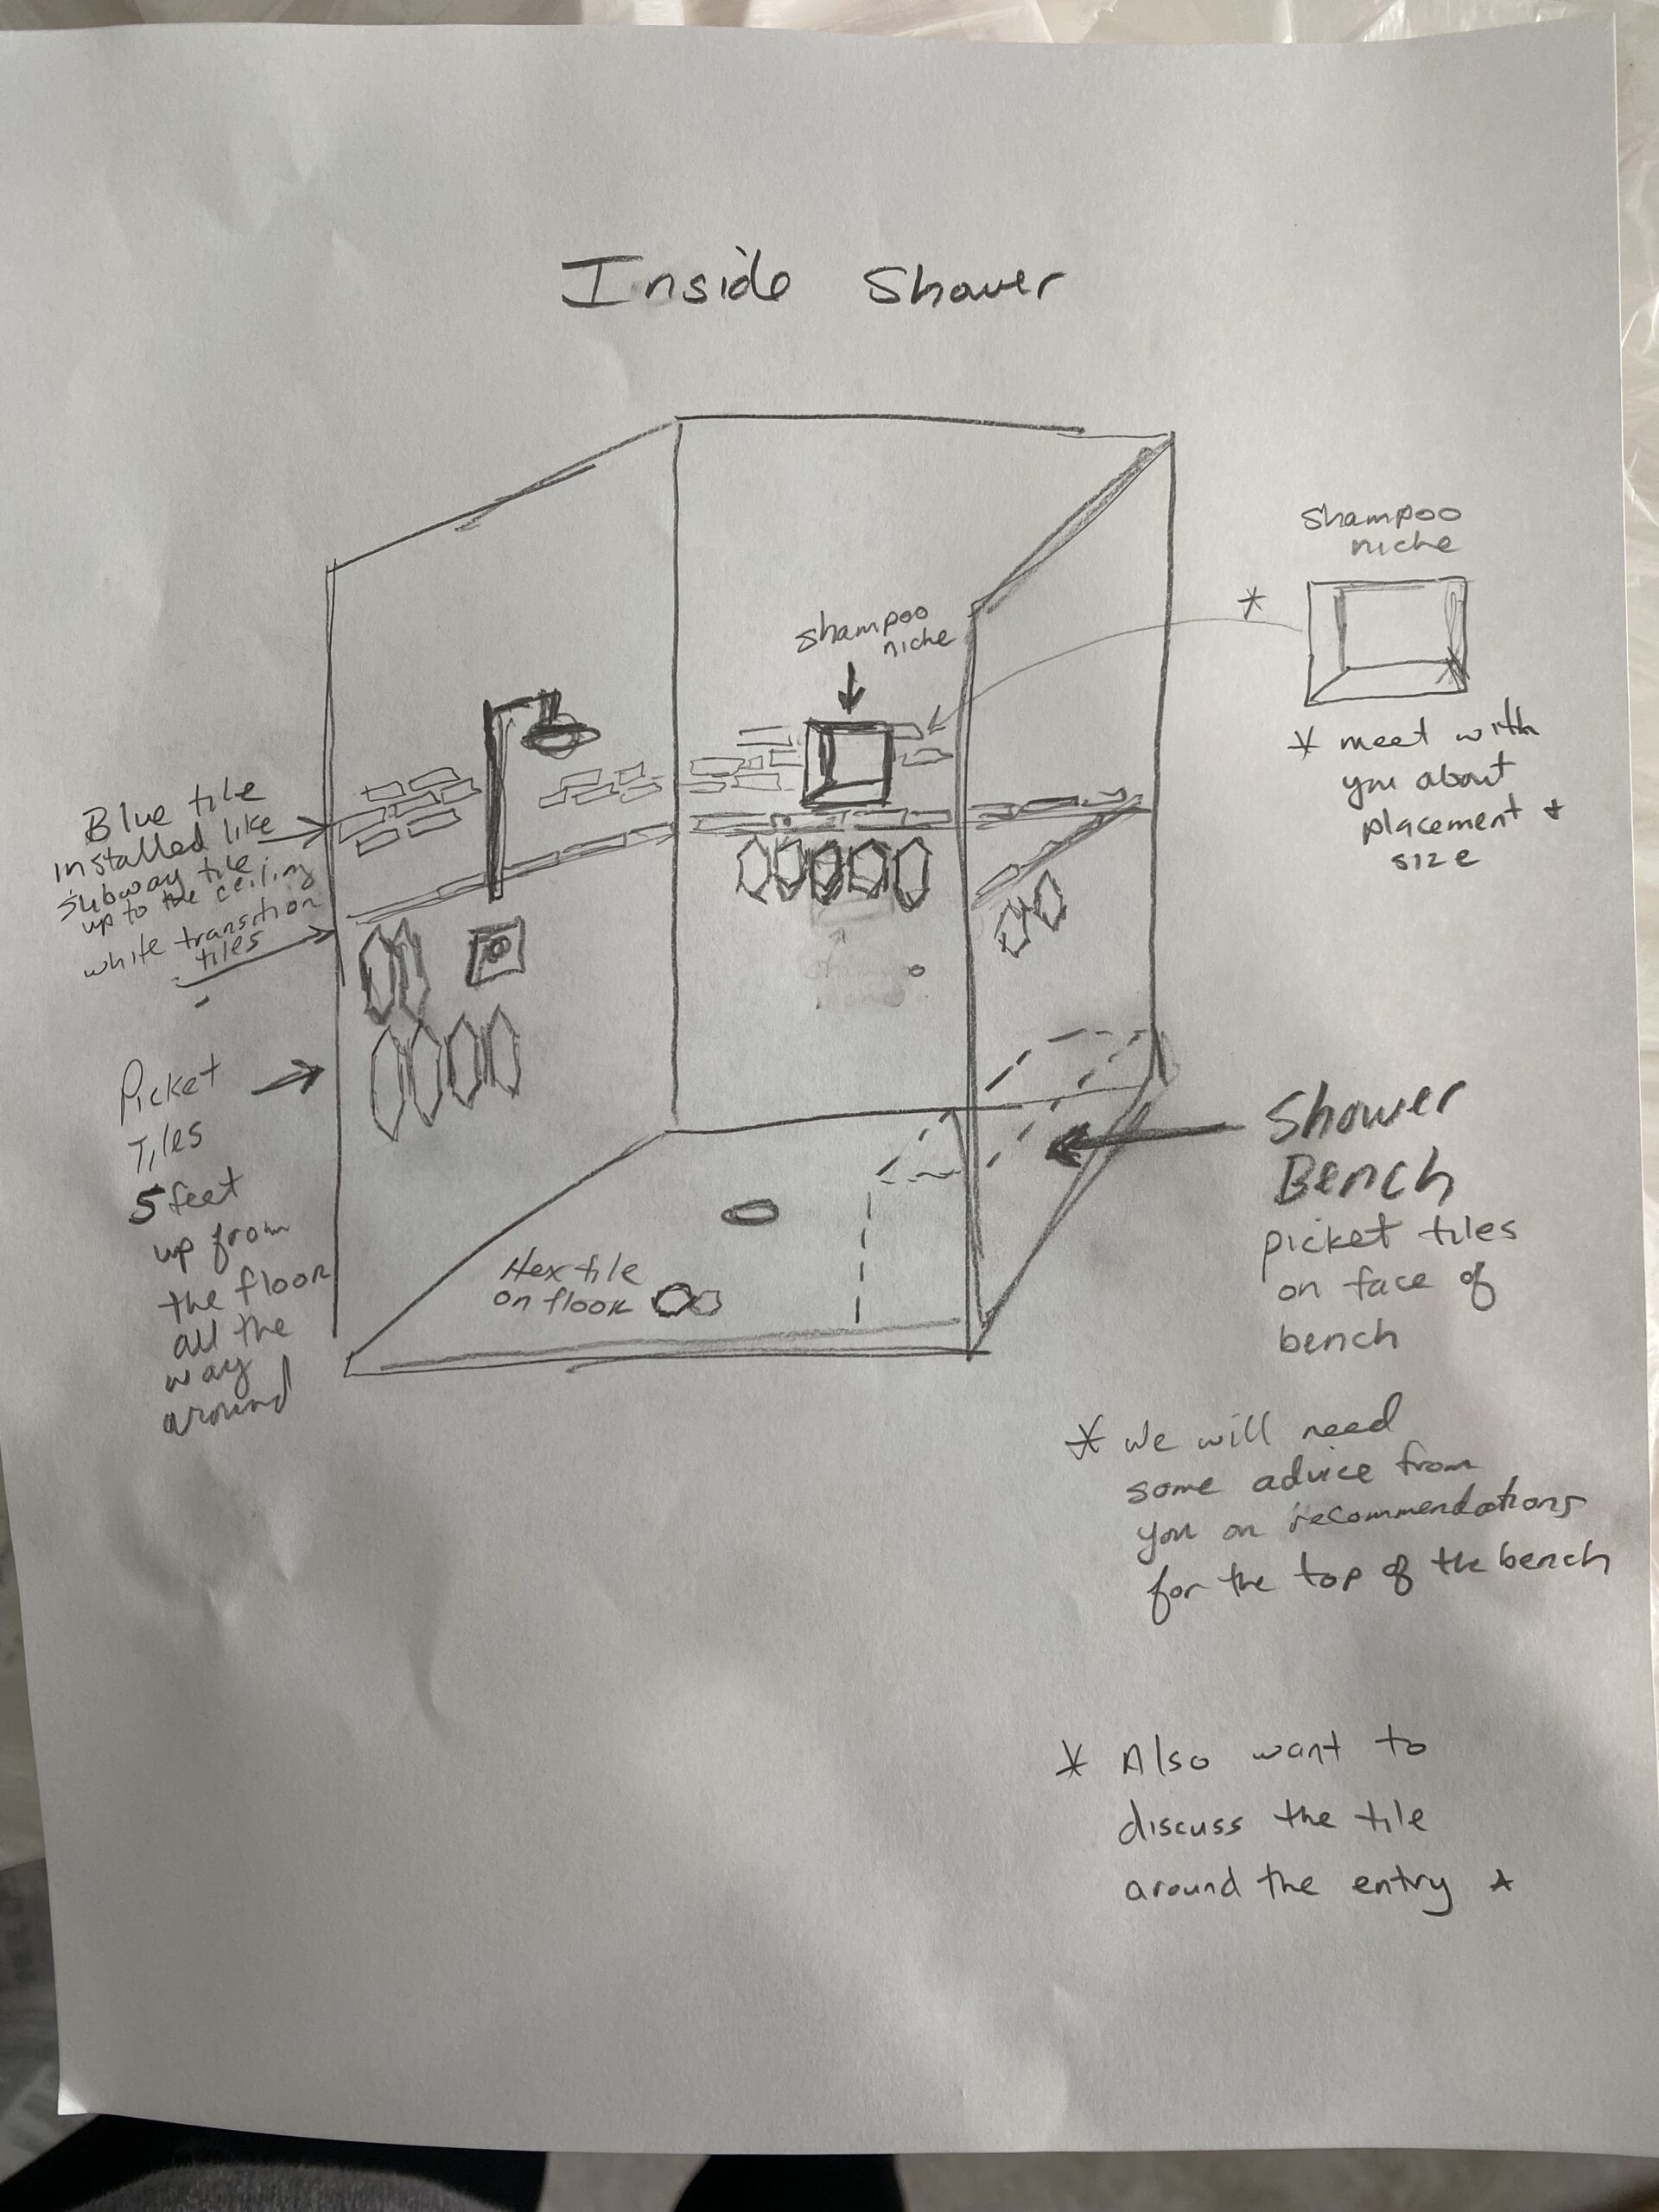 Inside Shower
shampoo
niche
shampoo
niche
* meet with
you about
placement +
size
Blue tile
installed like
subway tile
up to the ceiling
white transition
tiles
Picket
Tiles
5 feet
up from
the floor
all the
way
around
Hex tile
on floor
Shower
Bench
picket tiles
on face of
bench
* We will need
some advice from
you on recommendations
for the top of the bench
* Also want to
discuss the tile
around the entry *